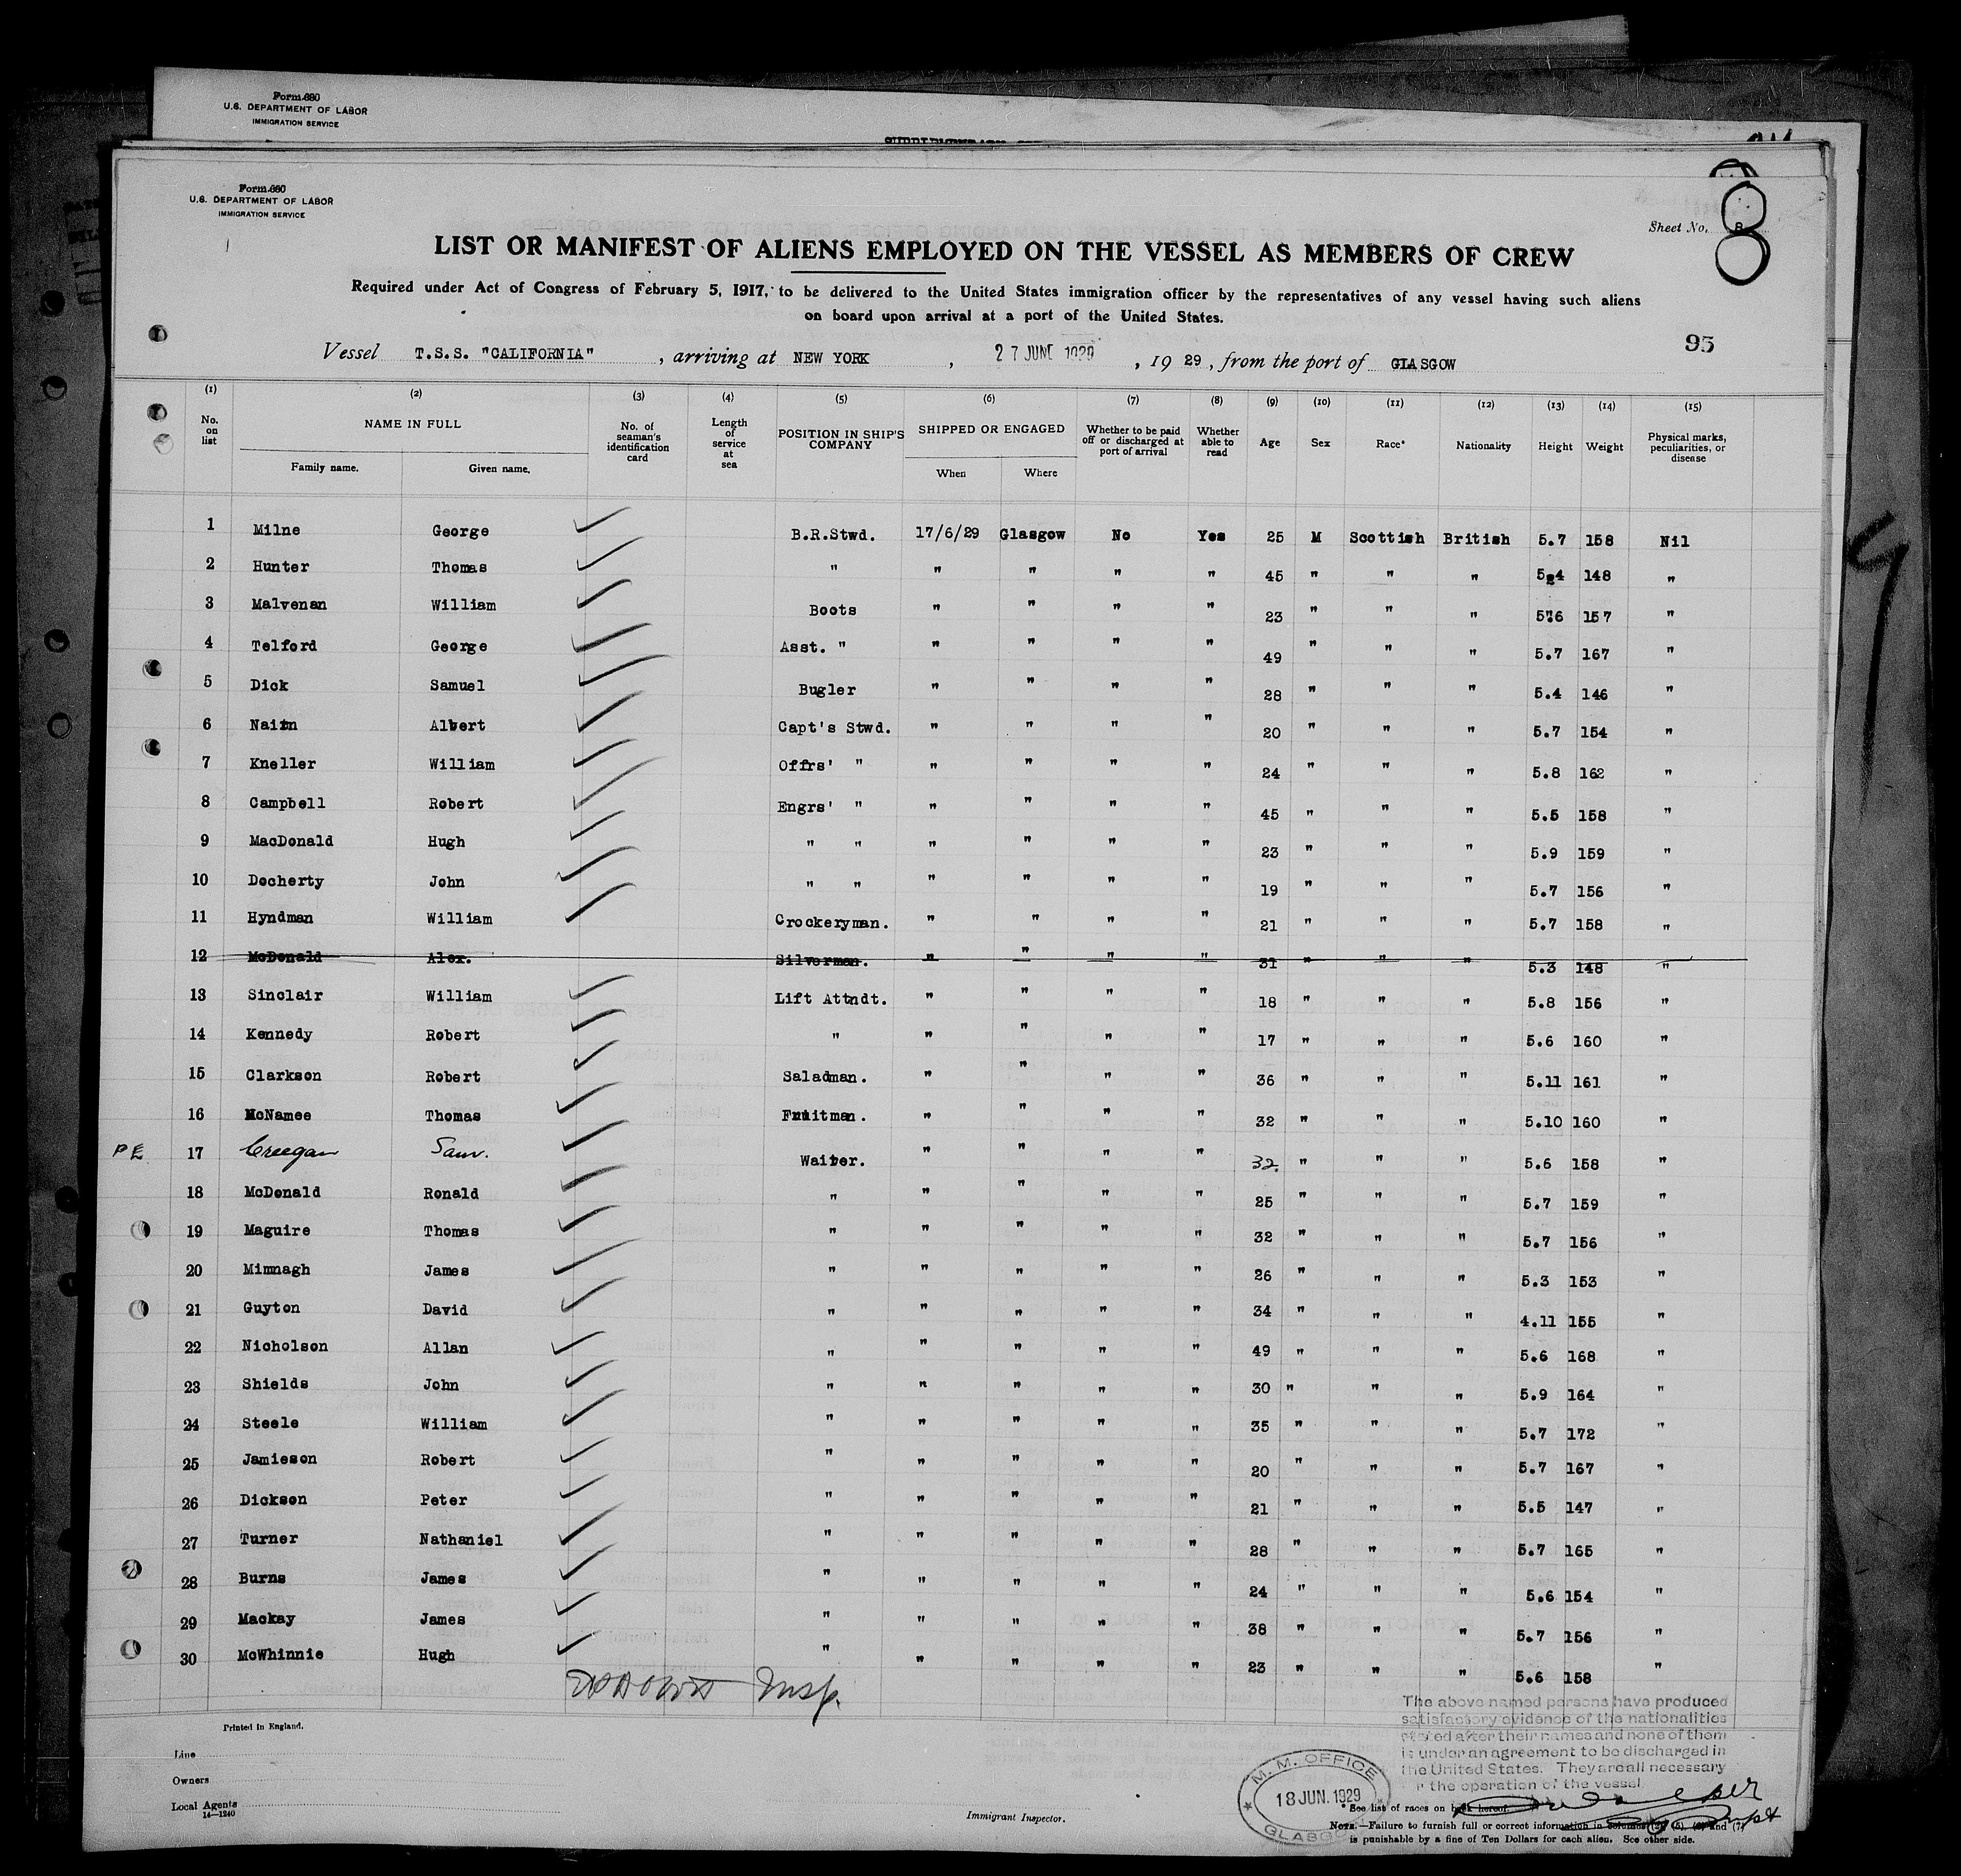 Form 680
U.S. DEPARTMENT OF LABOR
IMMIGRATION SERVICE
Form 680
U.S. DEPARTMENT OF LABOR
IMMIGRATION SERVICE
Sheet No. 8
8
LIST OR MANIFEST OF ALIENS EMPLOYED ON THE VESSEL AS MEMBERS OF CREW
Required under Act of Congress of February 5, 1917, to be delivered to the United States immigration officer by the representatives of any vessel having such aliens
on board upon arrival at a port of the United States.
95
Vessel T.S.S. "CALIFORNIA", arriving at NEW YORK, 27 JUNE 1929, 19 29, from the port of GLASGOW
(1) (2) (3) (4) (5) (6) (7) (8) (9) (10) (11) (12) (13) (14) (15)
No. on list NAME IN FULL Family name. Given name. No. of seaman's identification card Length of service at sea POSITION IN SHIP'S COMPANY SHIPPED OR ENGAGED When Where Whether to be paid off or discharged at port of arrival Whether able to read Age Sex Race* Nationality Height Weight Physical marks, peculiarities, or disease
1 Milne George B.R.Stwd. 17/6/29 Glasgow No Yes 25 M Scottish British 5.7 158 Nil
2 Hunter Thomas " " " " " 45 " " " 5.4 148 "
3 Malvenan William Boots " " " " 23 " " " 5.6 157 "
4 Telford George Asst. " " " " " 49 " " " 5.7 167 "
5 Dick Samuel Bugler " " " " 28 " " " 5.4 146 "
6 Nairn Albert Capt's Stwd. " " " " 20 " " " 5.7 154 "
7 Kneller William Offrs' " " " " " 24 " " " 5.8 162 "
8 Campbell Robert Engrs' " " " " " 45 " " " 5.5 158 "
9 MacDonald Hugh " " " " " " 23 " " " 5.9 159 "
10 Docherty John " " " " " " 19 " " " 5.7 156 "
11 Hyndman William Crockeryman. " " " " 21 " " " 5.7 158 "
12 McDonald Alex. Silverman. " " " " 31 " " " 5.3 148 "
13 Sinclair William Lift Attndt. " " " " 18 " " " 5.8 156 "
14 Kennedy Robert " " " " " 17 " " " 5.6 160 "
15 Clarkson Robert Saladman. " " " " 36 " " " 5.11 161 "
16 McNamee Thomas Fruitman. " " " " 32 " " " 5.10 160 "
PE 17 Creegan Sam. Waiter. " " " " 32 " " " 5.6 158 "
18 McDonald Ronald " " " " " 25 " " " 5.7 159 "
19 Maguire Thomas " " " " " 32 " " " 5.7 156 "
20 Mimnagh James " " " " " 26 " " " 5.3 153 "
21 Guyton David " " " " " 34 " " " 4.11 155 "
22 Nicholson Allan " " " " " 49 " " " 5.6 168 "
23 Shields John " " " " " 30 " " " 5.9 164 "
24 Steele William " " " " " 35 " " " 5.7 172 "
25 Jamieson Robert " " " " " 20 " " " 5.7 167 "
26 Dickson Peter " " " " " 21 " " " 5.5 147 "
27 Turner Nathaniel " " " " " 28 " " " 5.7 165 "
28 Burns James " " " " " 24 " " " 5.6 154 "
29 Mackay James " " " " " 38 " " " 5.7 156 "
30 McWhinnie Hugh " " " " " 23 " " " 5.6 158 "
Insp.
The above named persons have produced
satisfactory evidence of the nationalities
stated after their names and none of them
is under an agreement to be discharged in
the United States. They are all necessary
the operation of the vessel
Printed in England.
Line
Owners
Local Agents
14—1240
Immigrant Inspector.
M. M. OFFICE
18 JUN. 1929
GLASGOW
* See list of races on back hereof.
NOTE.—Failure to furnish full or correct information in columns (5), (6) and (7)
is punishable by a fine of Ten Dollars for each alien. See other side.